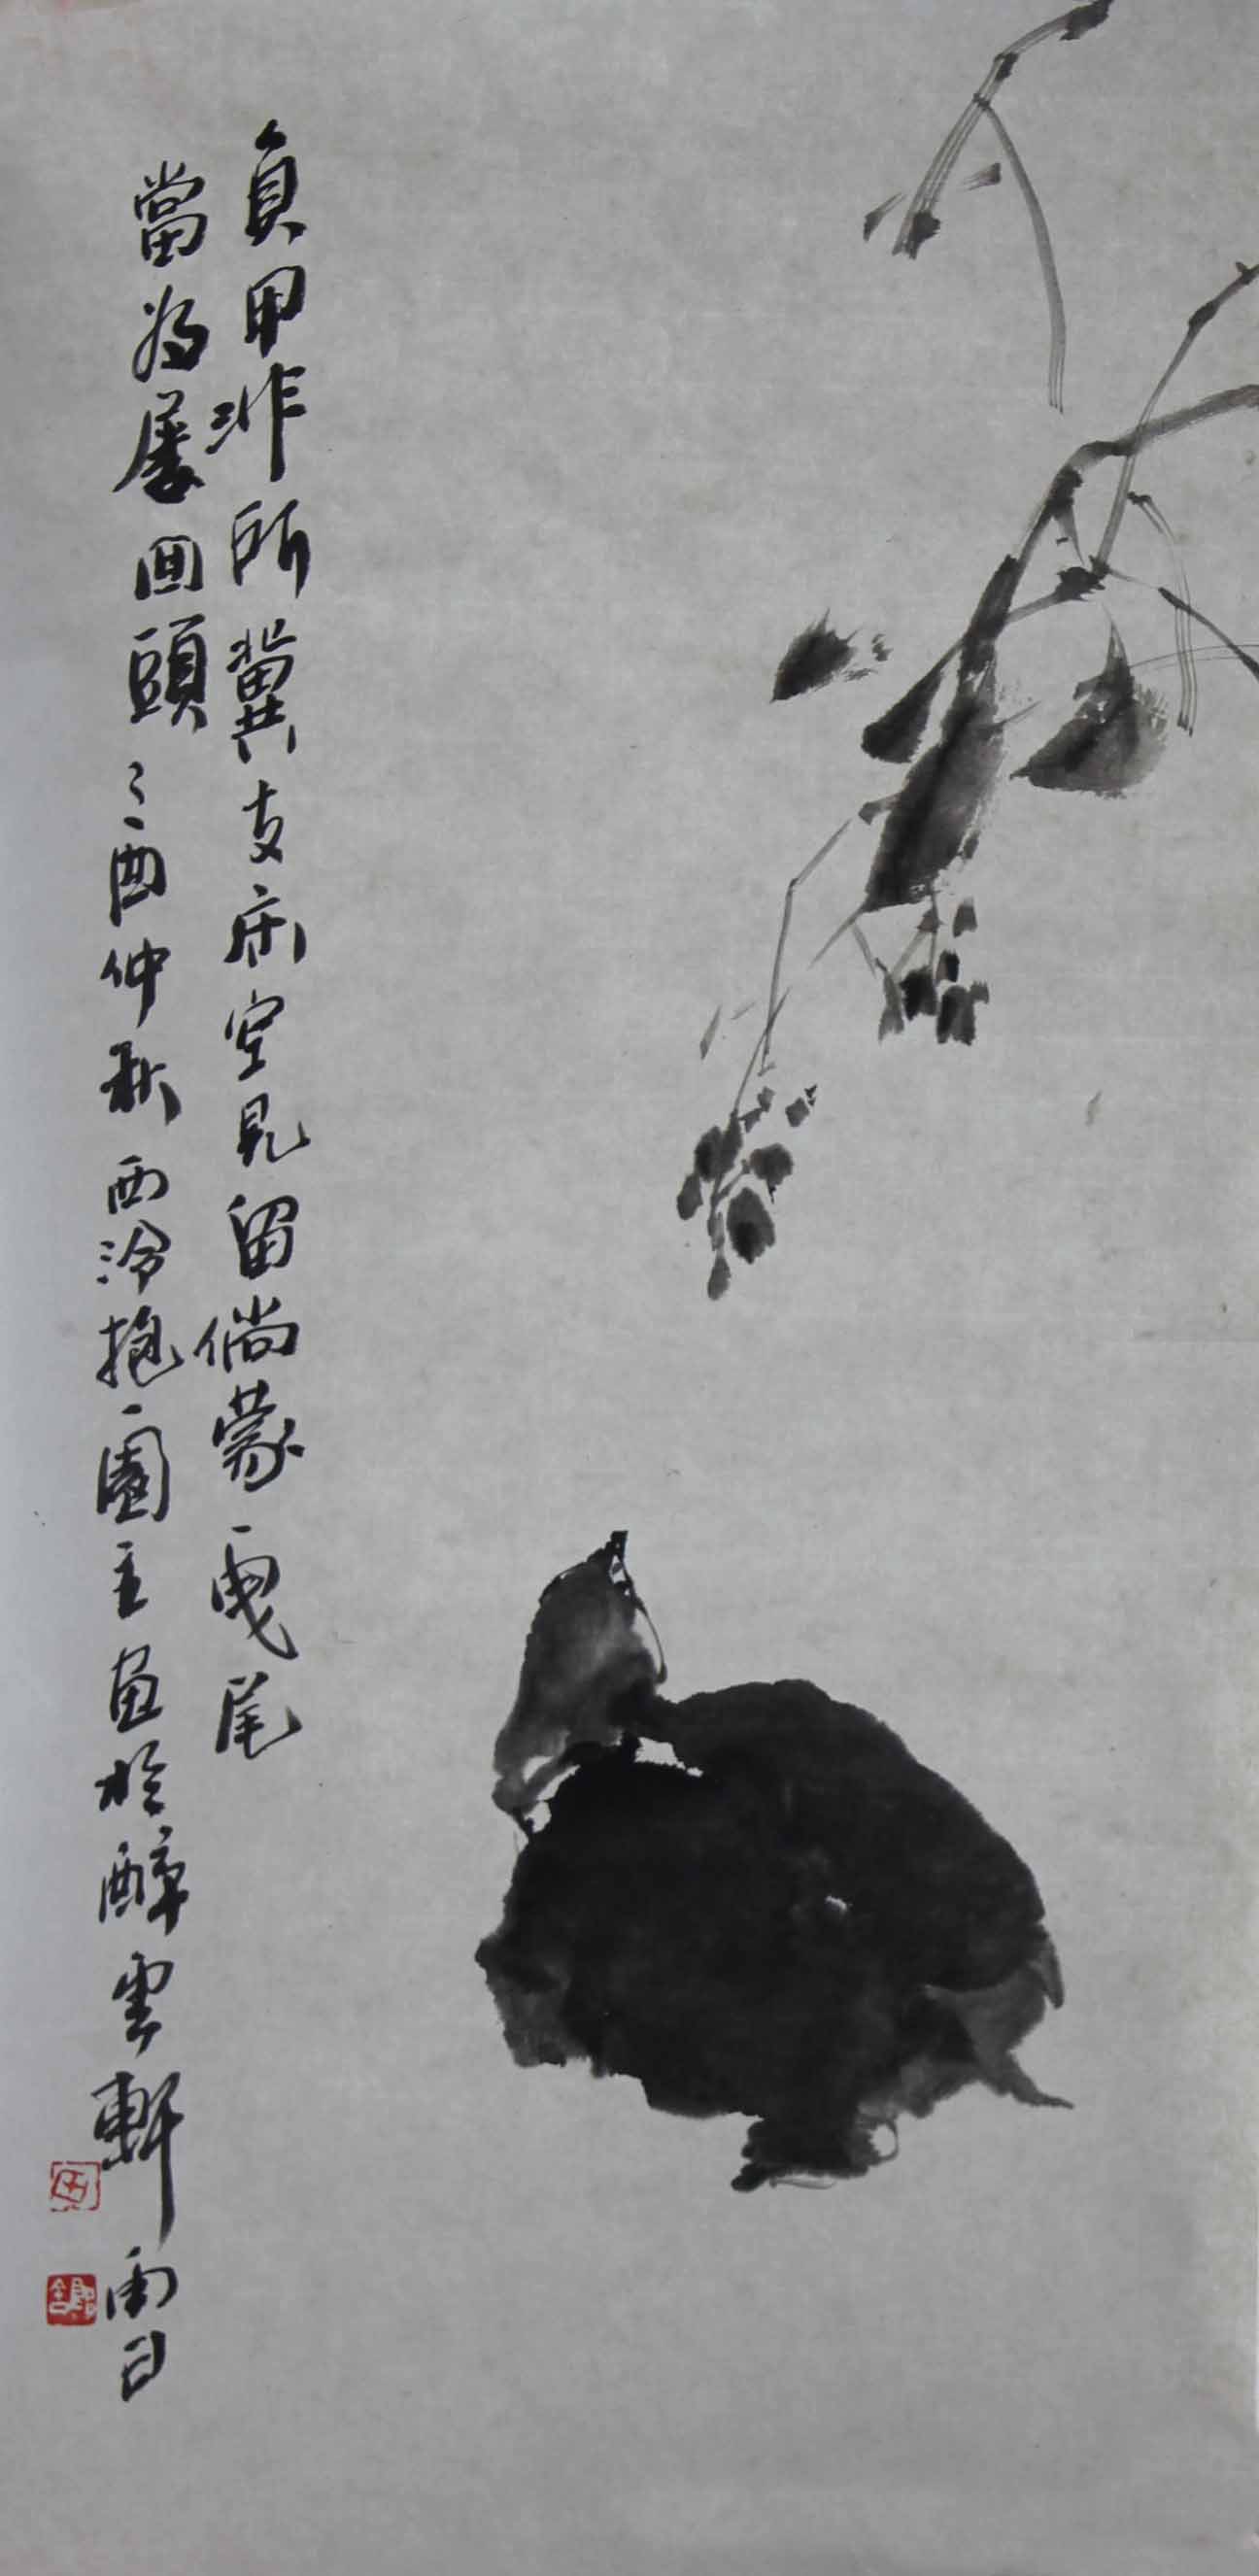 負甲非所冀支床空見留倘蒙一曳尾
當為屢回頭乙酉仲秋西泠抱一園主畫於醉雲軒雨日